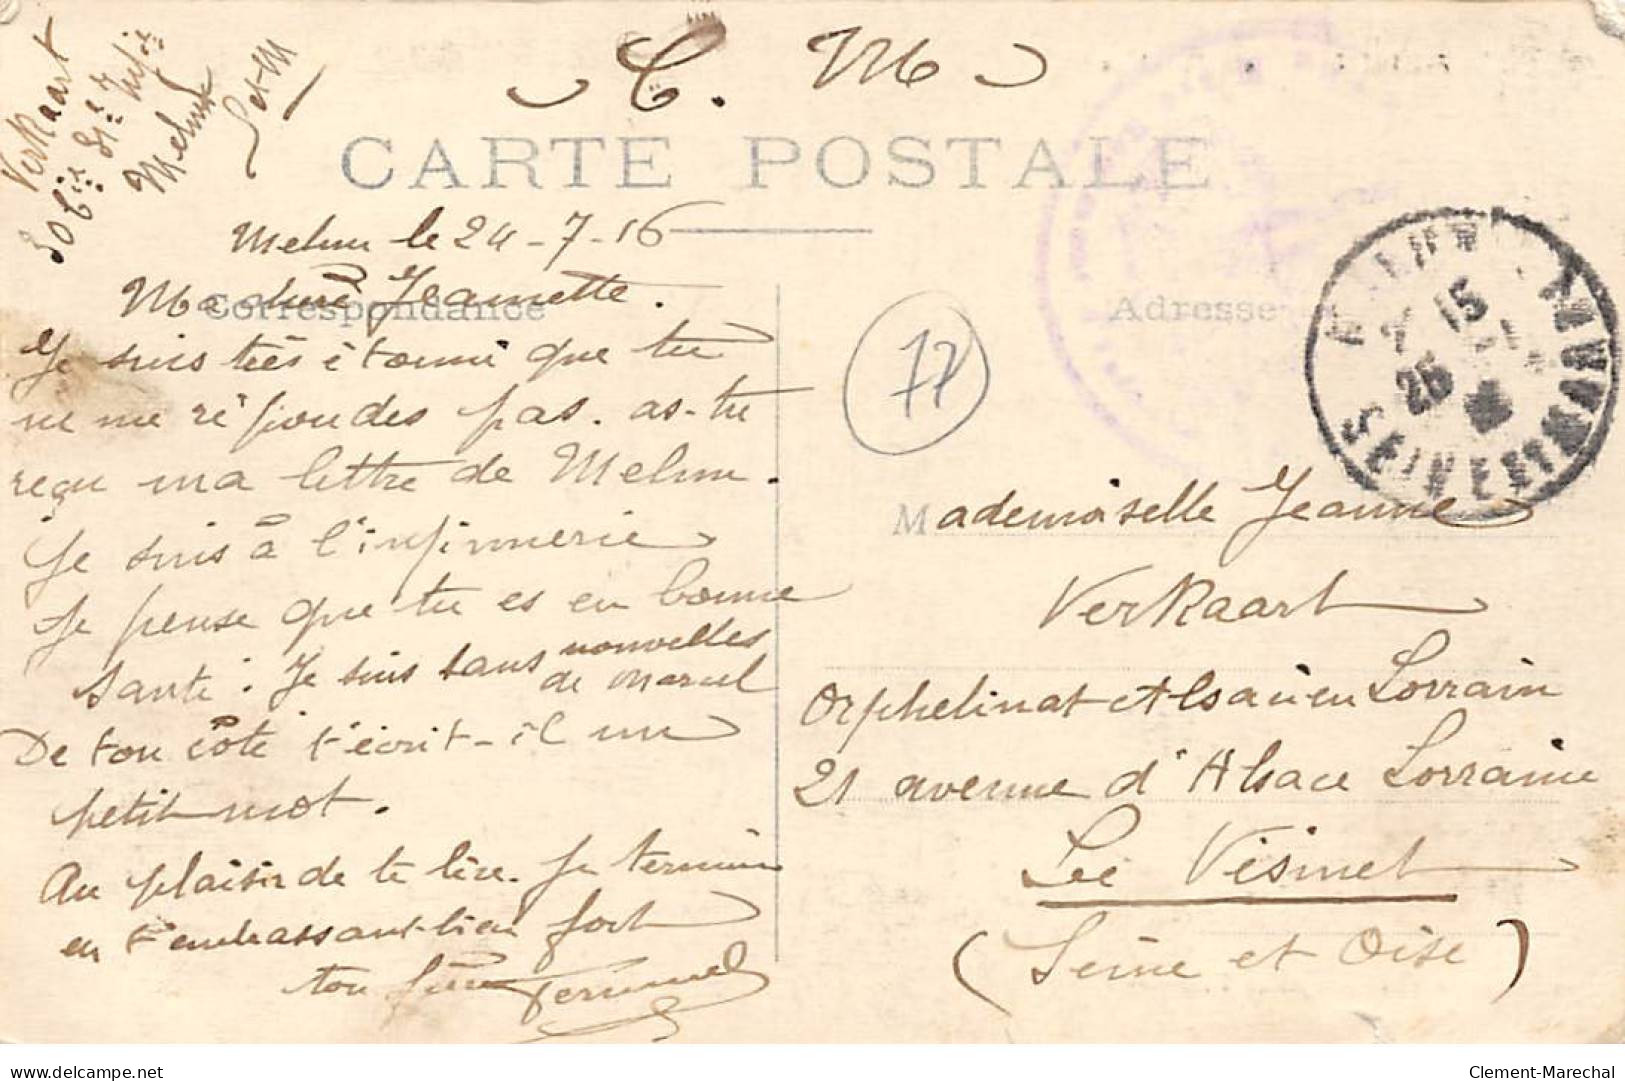 C. M
Verkaart
Melun
S et M
CARTE POSTALE
Melun le 24-7-16
Correspondance
Ma chère Jeannette.
Je suis très étonné que tu
ne me répondes pas. as-tu
reçu ma lettre de Melun.
Je suis à l'infirmerie
Je pense que tu es en bonne
santé. Je suis sans nouvelles
de Marcel
De ton côté t'écrit-il un
petit mot.
Au plaisir de te lire. Je termine
en t'embrassant bien fort
ton frère Fernand
77
Adresse
MELUN
15
25
SEINE ET MARNE
Mademoiselle Jeanne
Verkaart
Orphelinat Alsacien Lorrain
21 avenue d'Alsace Lorraine
Le Vésinet
(Seine et Oise)
Clement-Marechal